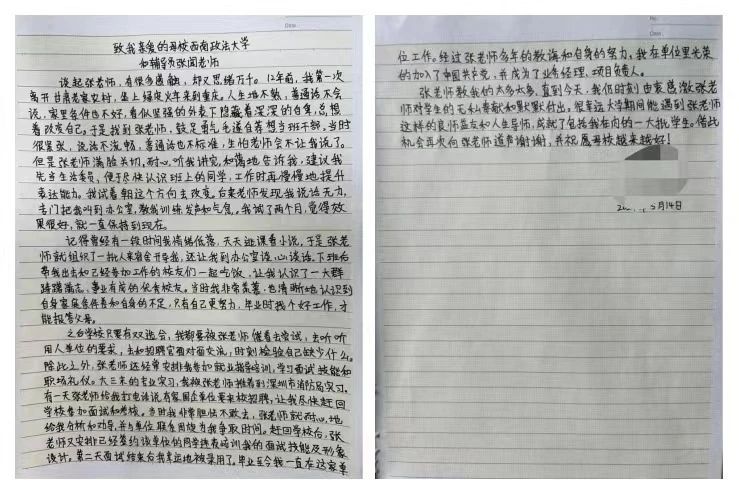 Date
致我亲爱的母校西南政法大学
和辅导员张闻老师
谈起张老师,有很多感触,却又思绪万千。12年前,我第一次
离开甘肃老家农村,坐上绿皮火车来到重庆。人生地不熟,普通话不会
说,家里条件也不好,看似坚强的外表下隐藏着深深的自卑,总想
着改变自己。于是找到张老师,鼓足勇气毛遂自荐想当班干部,当时
很紧张,说话不流畅,普通话也不标准,生怕老师会不让我说了。
但是张老师满脸关切,耐心听我讲完,和蔼地告诉我,建议我
先当生活委员,便于尽快认识班上的同学,工作时再慢慢地提升
表达能力。我试着朝这个方向去改变。后来老师发现我说话无力,
专门把我叫到办公室,教我训练发声和气息,我试了两个月,觉得效
果很好,就一直保持到现在。
记得曾经有一段时间我情绪低落,天天逃课看小说,于是张老
师就组织了一批人来宿舍开导我,还让我到办公室谈心谈话。下班后
带我出去和已经参加工作的校友们一起吃饭,让我认识了一大群
踌躇满志、事业有成的优秀校友。当时我非常羡慕,也清晰地认识到
自身家庭条件差和自身的不足,只有自己更努力,毕业时找个好工作,才
能报答父母。
之后学校只要有双选会,我都要被张老师催着去尝试,去听听
用人单位的要求,去和招聘官面对面交流,时刻检验自己缺少什么。
除此之外,张老师还经常安排我参加就业指导培训,学习面试技能和
职场礼仪。大三末的专业实习,我被张老师推荐到深圳市消防局实习。
有一天张老师给我打电话说有家国企单位要来校招聘,让我尽快赶回
学校参加面试和考核。当时我非常胆怯不敢去,张老师就耐心地
给我分析和劝导,并与单位联系因故为我争取时间。赶回学校后,张
老师又安排已经签约该单位的同学连夜培训我的面试技能及形象
设计。第二天面试结束后我幸运地被录用了。毕业至今我一直在这家单
Date
位工作。经过张老师多年的教诲和自身的努力,我在单位里光荣
的加入了中国共产党,并成为了业务经理、项目负责人。
张老师教我的太多太多,直到今天,我仍时刻由衷感激张老
师对学生的无私奉献和默默付出。很幸运大学期间能遇到张老师
这样的良师益友和人生导师,成就了包括我在内的一大批学生。借此
机会再次向张老师道声谢谢,并祝愿母校越来越好!
5月14日